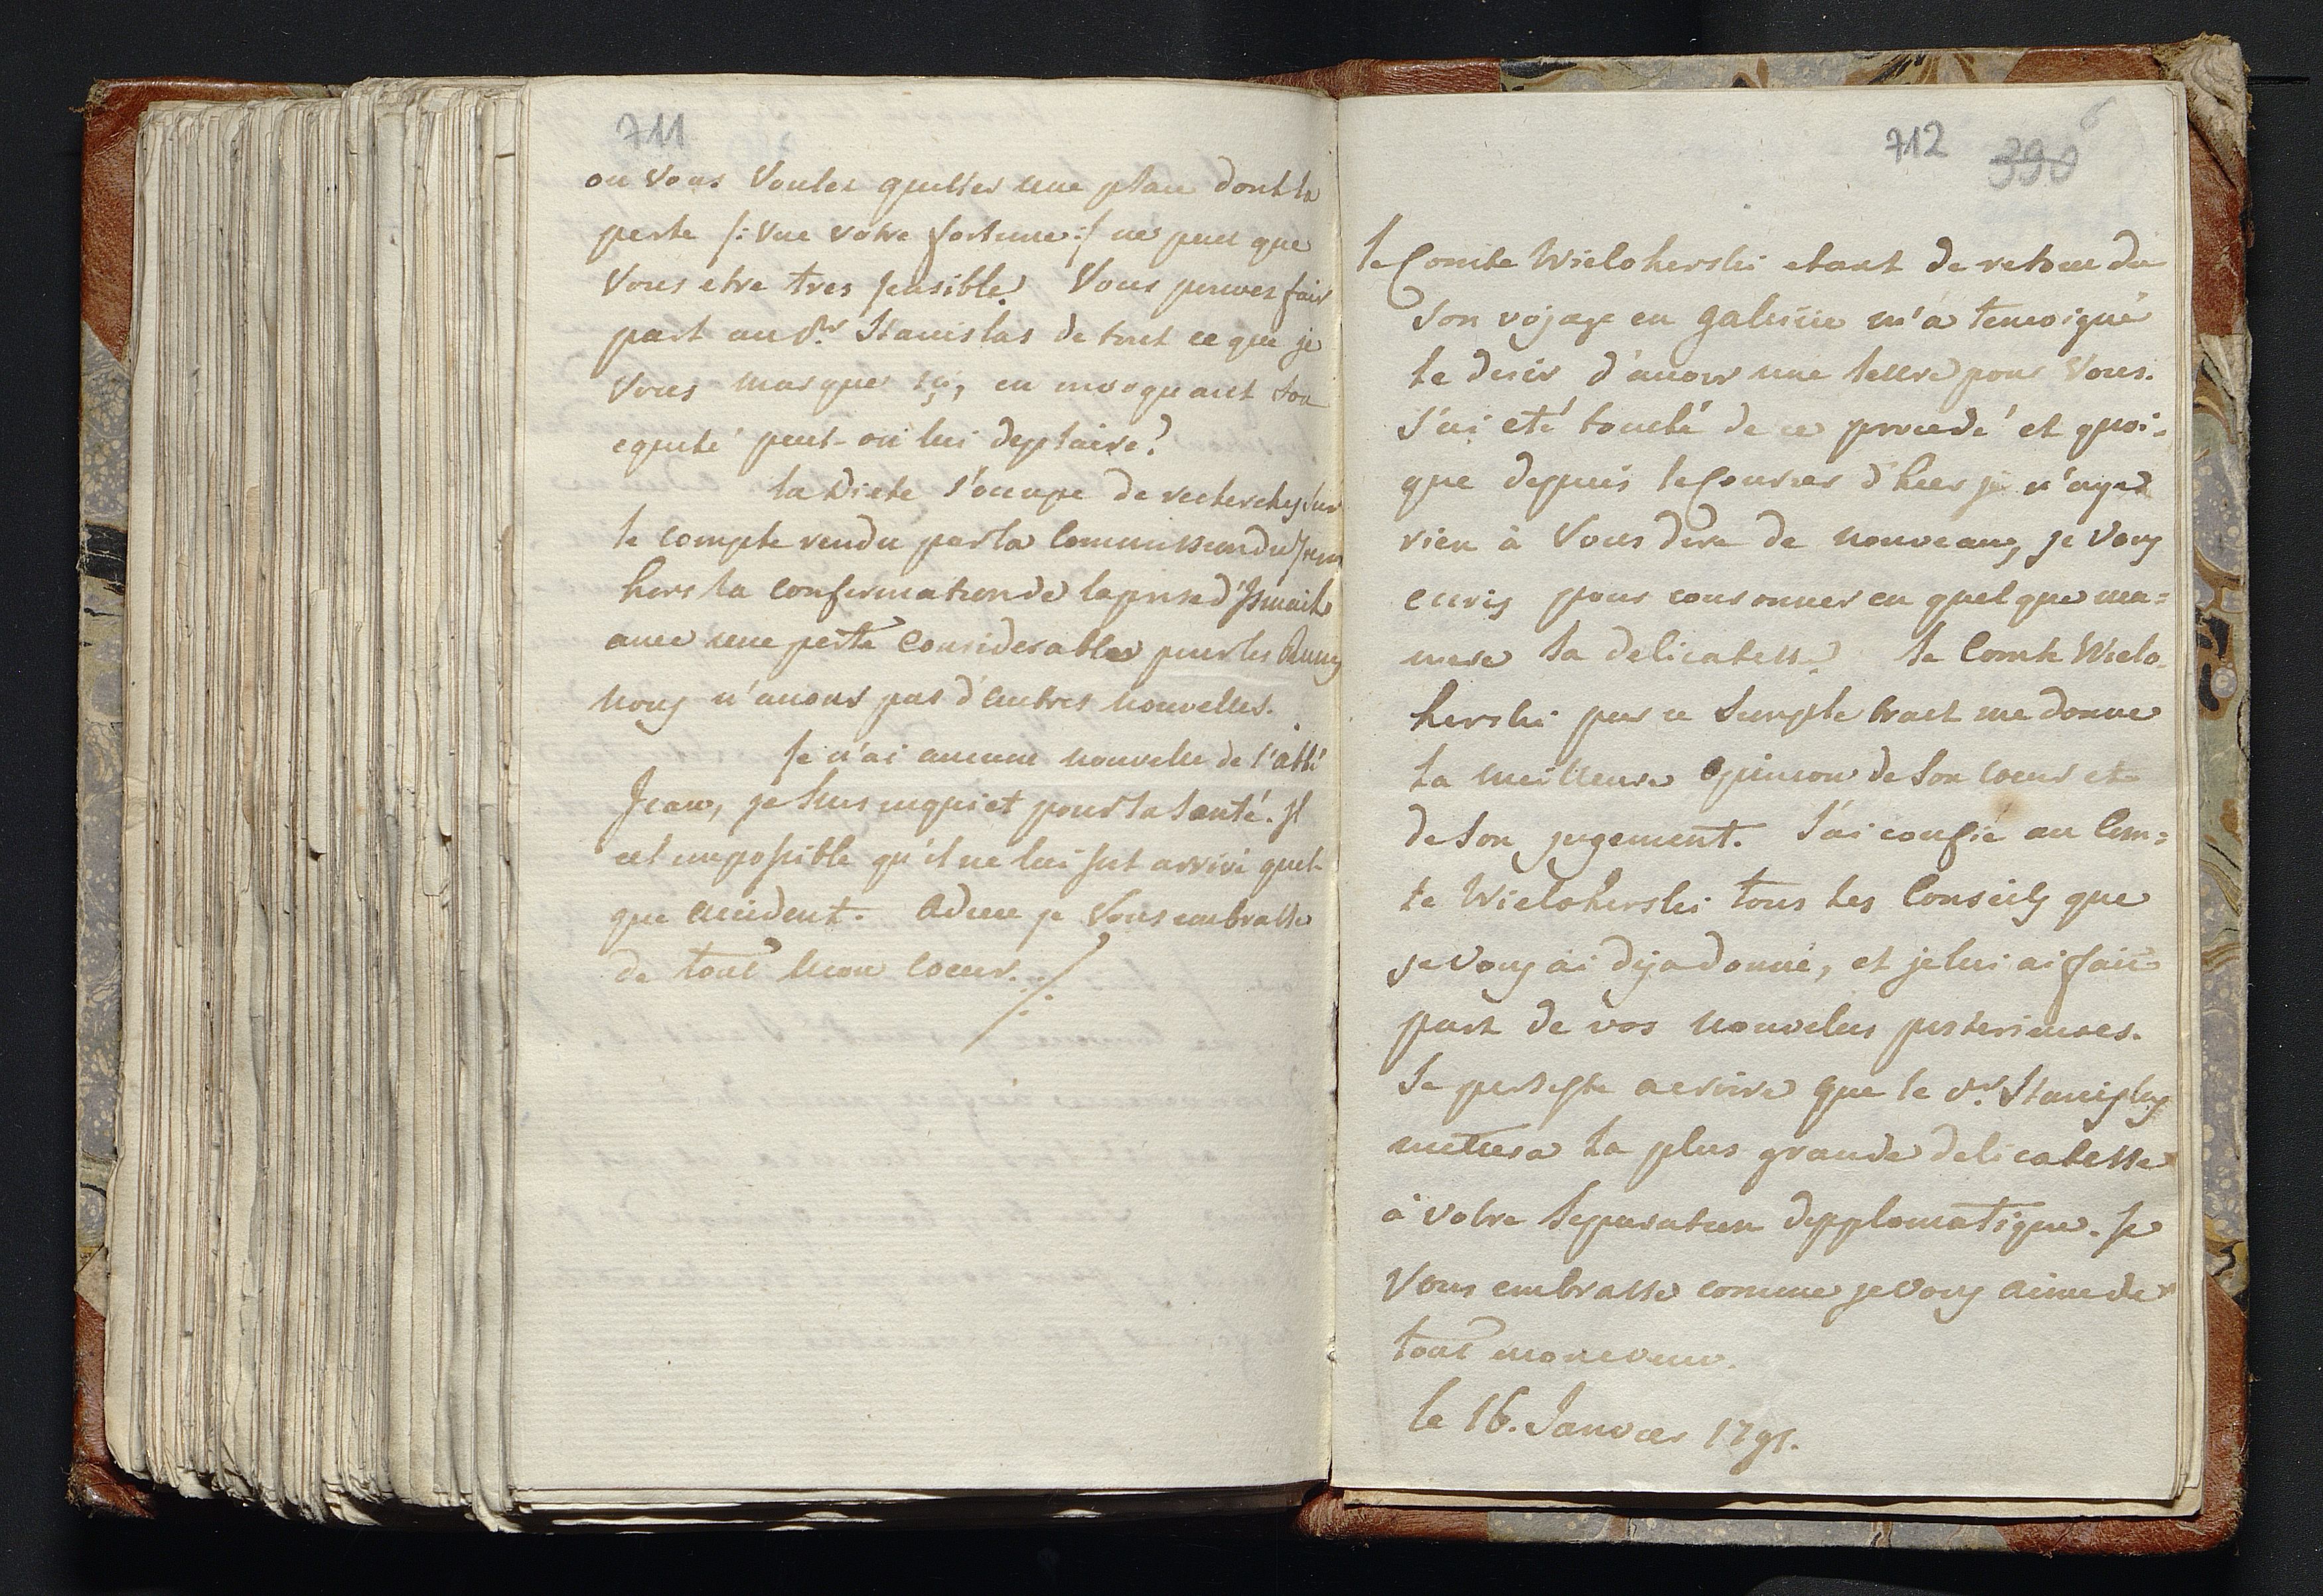 711
ou Vous Voulez quitter une place dont la
perte /: Vue votre fortune :/ ne peut que
Vous etre tres sensible. Vous pouvez fair
part au Pr. Stanislas de tout ce que je
Vous marque içi, en invoquant son
equité peut-on lui deplaire?
la Diete s'occupe de recherches sur
le compte rendu par la Commission du
hors la confirmation de la prise d'Ismailo
avec une perte considerable pour les
nous n'avons pas d'autres nouvelles.
Je n'ai aucune nouvelle de l'abbé
Jean, je suis inquiet pour sa santé. Il
est impossible qu'il ne lui fut arrivé quel-
que accident. Adieu je Vous embrasse
de tout mon coeur. ./.
712 390 6
le Comte Wielohorski etant de retour de
son vojage en galicie m'a temoigné
le desir d'avoir une lettre pour Vous.
j'ai eté touché de ce procedé et quoi-
que depuis le Courier d'hier je n'aye
rien à Vous dire de nouveau, je Vous
ecris pour couronner en quelque ma=
niere sa delicatesse. le Comte Wielo-
horski par ce simple trait me donne
la meilleure opinion de son coeur et
de son jugement. J'ai confié au Com=
te Wielohorski tous les Conseils que
je Vous ai deja donné, et je lui ai fait
part de vos nouvelles posterieures.
Je persiste a croire que le Pr. Stanislas
mettera la plus grande delicatesse
à votre separation dipplomatique. Je
Vous embrasse comme je Vous aime de
tout mon coeur.
le 16. Janvier 1791.